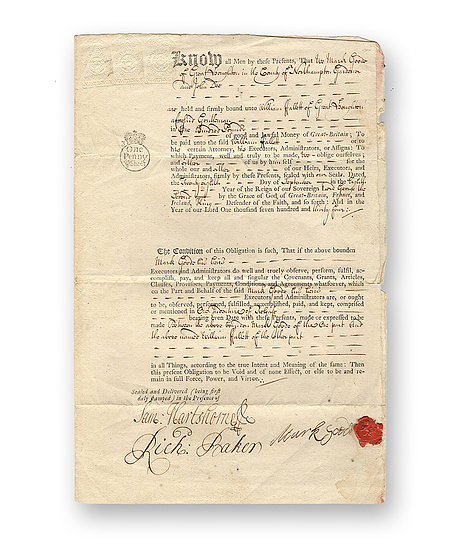 Know all Men by these Presents, That We Mark Goode
of Great Bowden in the County of Northampton
and John Dee
are held and firmly bound unto William Hallett of Great
aforesaid Gentleman
in One Hundred Pounds
of good and lawful Money of Great-Britain; To
be paid unto the said William Hallett or to
his certain Attorney, his Executors, Administrators, or Assigns: To
which Payment, well and truly to be made, oblige ourselves;
and of us by him self for the
whole our and our Heirs, Executors, and
Administrators, firmly by these Presents, sealed with our Seals. Dated
the Day of September in the
Year of the Reign of our Sovereign Lord George the
by the Grace of God of Great-Britain, France, and
Ireland, King Defender of the Faith, and so forth: And in the
Year of our Lord One thousand seven hundred and four
One
Penny
The Condition of this Obligation is such, That if the above bounden
Mark Goode his Heirs
Executors and Administrators do well and truely observe, perform, fulfil, ac-
complish, pay, and keep all and singular the Covenants, Grants, Articles,
Clauses, Provisoes, Payments, Conditions, and Agreements whatsoever, which
on the Part and Behalf of the said Mark Goode his Heirs
Executors and Administrators, are, or ought
to be, observed, performed, fulfilled, accomplished, paid, and kept, comprised
or mentioned in One Indenture of
bearing even Date with these Presents, made or expressed to be
made Between the above bounden Mark Goode of the One part And
the above named William Hallett of the Other part
in all Things, according to the true Intent and Meaning of the same: Then
this present Obligation to be Void and of none Effect, or else to be and re-
main in full Force, Power, and Virtue.
Sealed and Delivered (being first
duly Stamped) in the Presence of
Sam: Hartshorne
Rich: Baker
Mark Goode